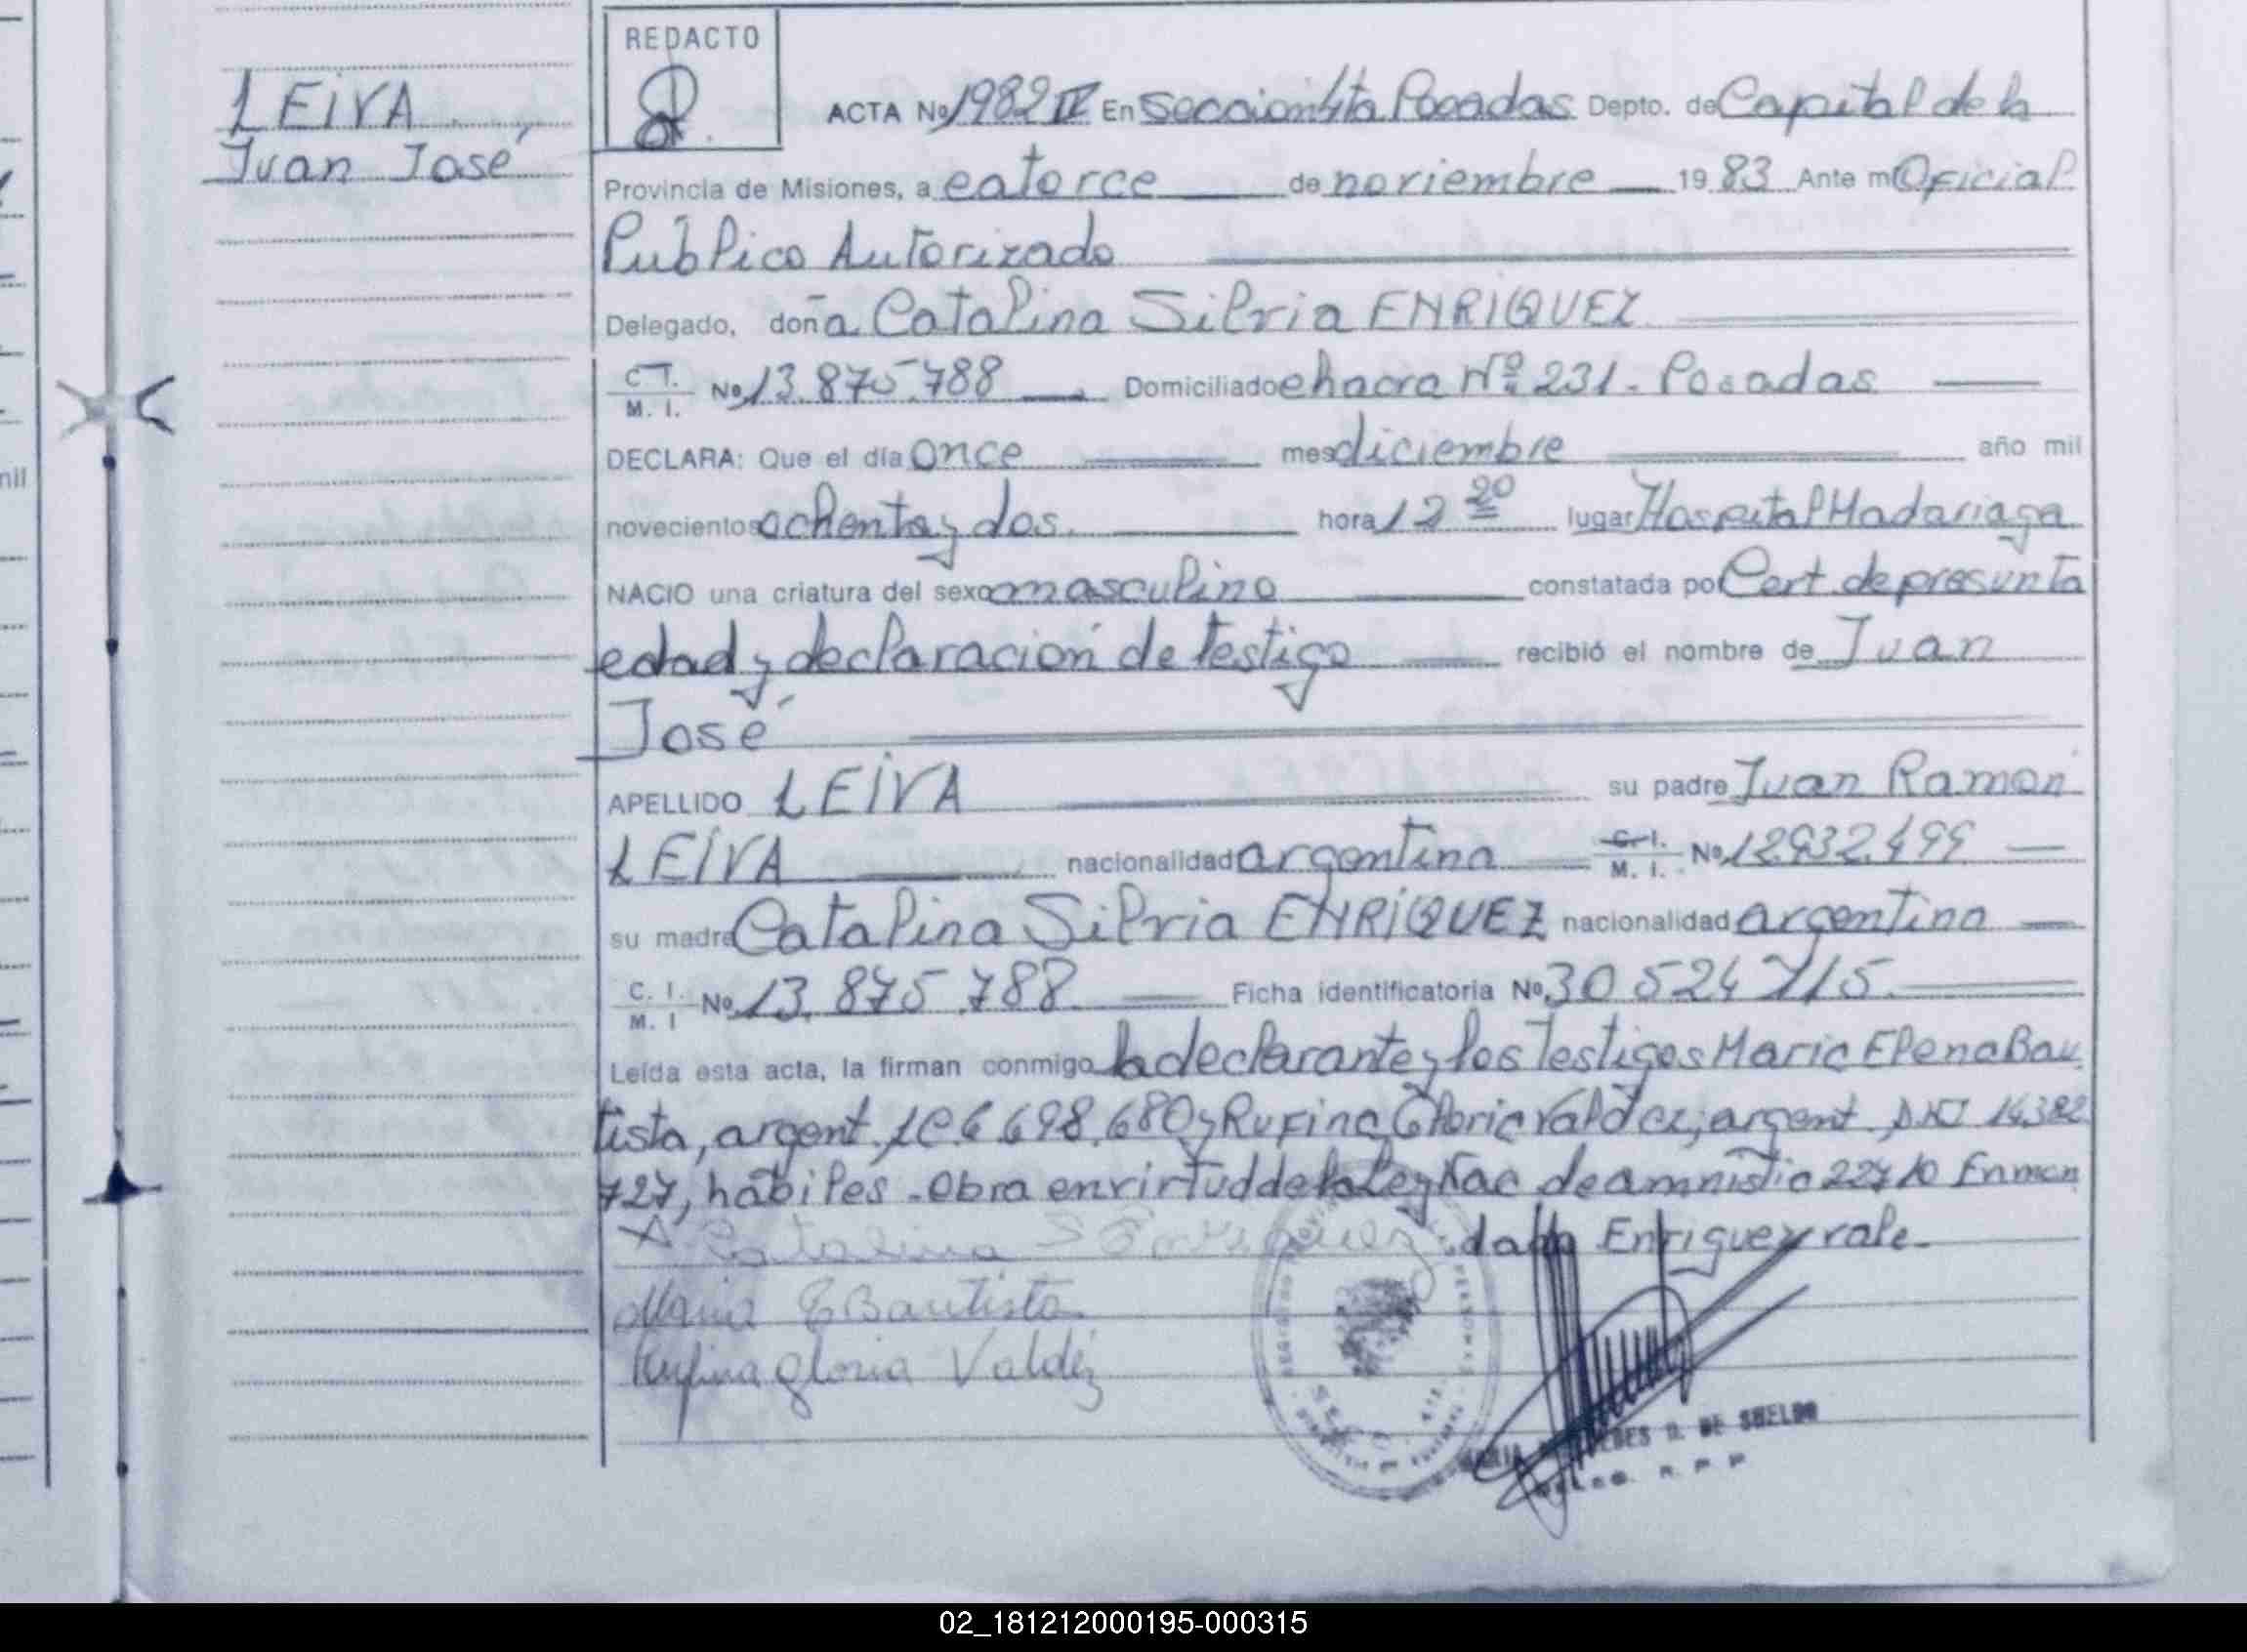 LEIVA
Juan José
REDACTO
ACTA Nº 1982 IV En Sección 4ta Posadas Depto. de Capital de la
Provincia de Misiones, a catorce de noviembre 1983 Ante mi Oficial
Público Autorizado
Delegado, doña Catalina Silvia ENRIQUEZ
C.I. M. I. Nº 13.875.788 Domiciliado chacra Nº 231 - Posadas
DECLARA: Que el día once mes diciembre año mil
novecientos ochenta y dos hora 12 20 lugar Hospital Madariaga
NACIO una criatura del sexo masculino constatada por Cert. de presunta
edad y declaración de testigo recibió el nombre de Juan
José
APELLIDO LEIVA su padre Juan Ramón
LEIVA nacionalidad argentina C. I. M. I. Nº
su madre Catalina Silvia ENRIQUEZ nacionalidad argentina
C. I. M. I Nº 13.875.788 Ficha identificatoria Nº 30 524 715
Leída esta acta, la firman conmigo la declarante y los Testigos Maria Elena Bau
tista, argent. LC 6.698.680 y Rufina Gloria Valdez, argent. DNI 14.382
727, hábiles - Obra en virtud de la Ley Nac de amnistia 22410 Enmen
dado Enriquez vale -
Catalina S Enriquez
Maria E Bautista
Rufina Gloria Valdéz
DE SUELDO
02_181212000195-000315